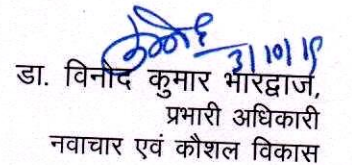 3/10/19
डा. विनोद कुमार भारद्वाज,
प्रभारी अधिकारी
नवाचार एवं कौशल विकास